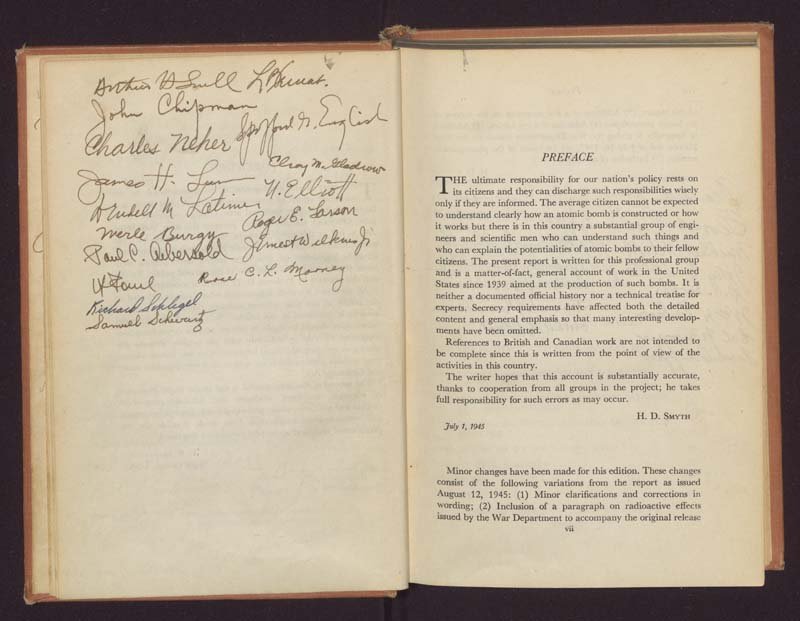 Arthur H Snell L B
John Chipman
Charles Neher Spofford G. English
Elroy M. Gladrow
James H.
N. Elliott
Wendell M Latimer
Roger E. Larson
Merle Burgy
J. Ernest Wilkins Jr
Paul C. Aebersold
Rose C. L. Mooney
Richard Schlegel
Samuel Schwartz
PREFACE
THE ultimate responsibility for our nation's policy rests on
its citizens and they can discharge such responsibilities wisely
only if they are informed. The average citizen cannot be expected
to understand clearly how an atomic bomb is constructed or how
it works but there is in this country a substantial group of engi-
neers and scientific men who can understand such things and
who can explain the potentialities of atomic bombs to their fellow
citizens. The present report is written for this professional group
and is a matter-of-fact, general account of work in the United
States since 1939 aimed at the production of such bombs. It is
neither a documented official history nor a technical treatise for
experts. Secrecy requirements have affected both the detailed
content and general emphasis so that many interesting develop-
ments have been omitted.
References to British and Canadian work are not intended to
be complete since this is written from the point of view of the
activities in this country.
The writer hopes that this account is substantially accurate,
thanks to cooperation from all groups in the project; he takes
full responsibility for such errors as may occur.
H. D. SMYTH
July 1, 1945
Minor changes have been made for this edition. These changes
consist of the following variations from the report as issued
August 12, 1945: (1) Minor clarifications and corrections in
wording; (2) Inclusion of a paragraph on radioactive effects
issued by the War Department to accompany the original release
vii